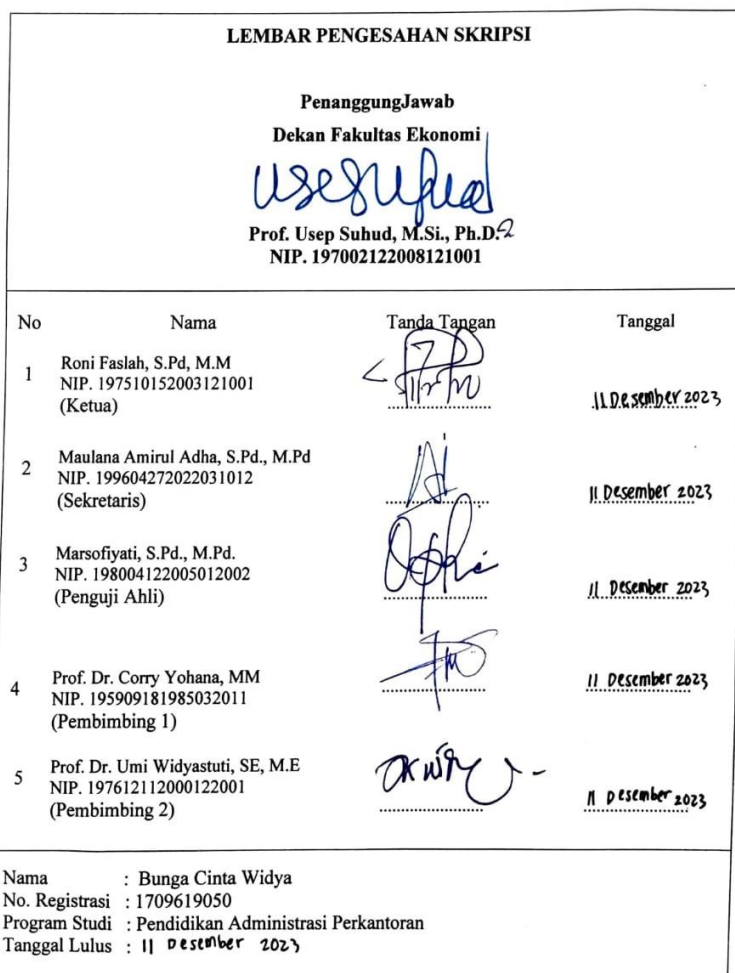 LEMBAR PENGESAHAN SKRIPSI
PenanggungJawab
Dekan Fakultas Ekonomi
Prof. Usep Suhud, M.Si., Ph.D.
NIP. 197002122008121001
No Nama Tanda Tangan Tanggal
1 Roni Faslah, S.Pd, M.M
NIP. 197510152003121001
(Ketua) 11 Desember 2023
2 Maulana Amirul Adha, S.Pd., M.Pd
NIP. 199604272022031012
(Sekretaris) 11 Desember 2023
3 Marsofiyati, S.Pd., M.Pd.
NIP. 198004122005012002
(Penguji Ahli) 11 Desember 2023
4 Prof. Dr. Corry Yohana, MM 11 Desember 2023
NIP. 195909181985032011
(Pembimbing 1)
5 Prof. Dr. Umi Widyastuti, SE, M.E
NIP. 197612112000122001
(Pembimbing 2) 11 Desember 2023
Nama : Bunga Cinta Widya
No. Registrasi : 1709619050
Program Studi : Pendidikan Administrasi Perkantoran
Tanggal Lulus : 11 Desember 2023